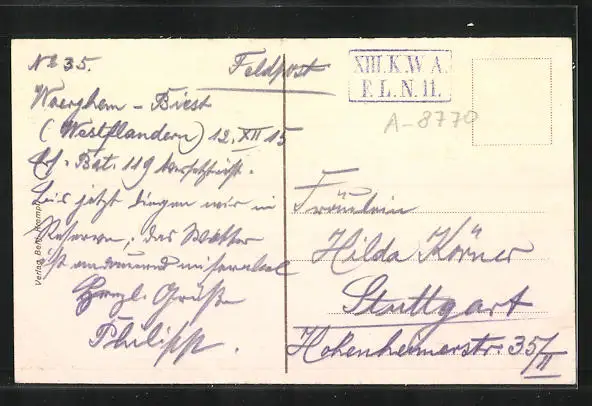 No 35.
Feldpost
XIII. K. W. A.
F. L. N. 11.
A-8770
Waerghem - Biest
(Westflandern) 12. XII 15
Bat. 119
bis jetzt liegen wir in
Reserve; das Wetter
ist andauernd miserabel
Herzl. Grüße
Philipp.
Fräulein
Hilda Körner
Stuttgart
Hohenheimerstr. 35/II
Verlag